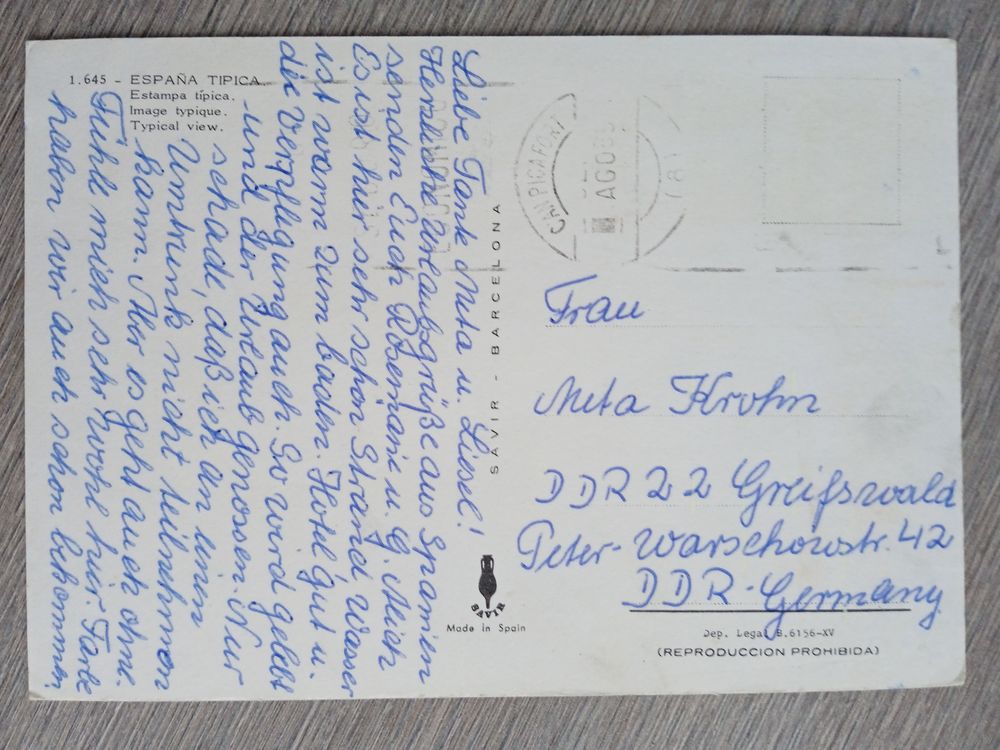 1.645 - ESPAÑA TIPICA.
Estampa típica.
Image typique.
Typical view.
Liebe Tante Meta u. Liesel!
Herzliche Urlaubsgrüße aus Spanien
senden Euch Rosemarie u. G. Mich
Es ist hier sehr schön Strand Wasser
ist warm zum baden. Hotel gut u.
die Verpflegung auch. So wird gelebt
und der Urlaub genossen. Nur
schade, daß ich an einen
Umtrunk nicht teilnehmen
kann. Aber es geht auch ohne.
Fühle mich sehr wohl hier. Farbe
haben wir auch schon bekommen.
SAVIR - BARCELONA
CAN PICAFORT
AGO
(8)
Frau
Meta Krohn
DDR 22 Greifswald
Peter-Warschowstr. 42
DDR-Germany
SAVIR
Made in Spain
Dep. Legal B.6156-XV
(REPRODUCCION PROHIBIDA)